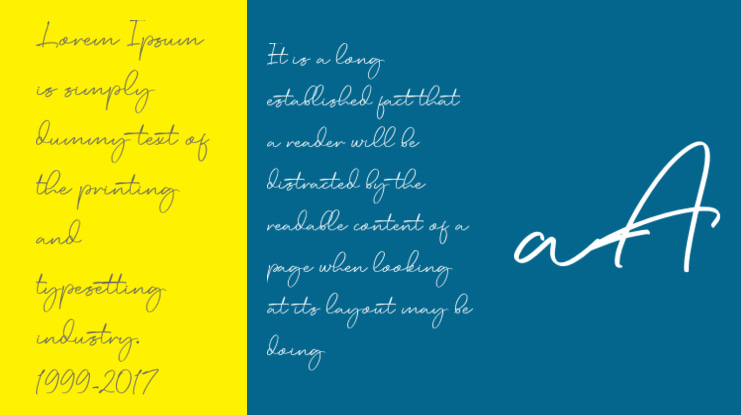 Lorem Ipsum
is simply
dummy text of
the printing
and
typesetting
industry.
1999-2017
It is a long
established fact that
a reader will be
distracted by the
readable content of a
page when looking
at its layout may be
doing
aA